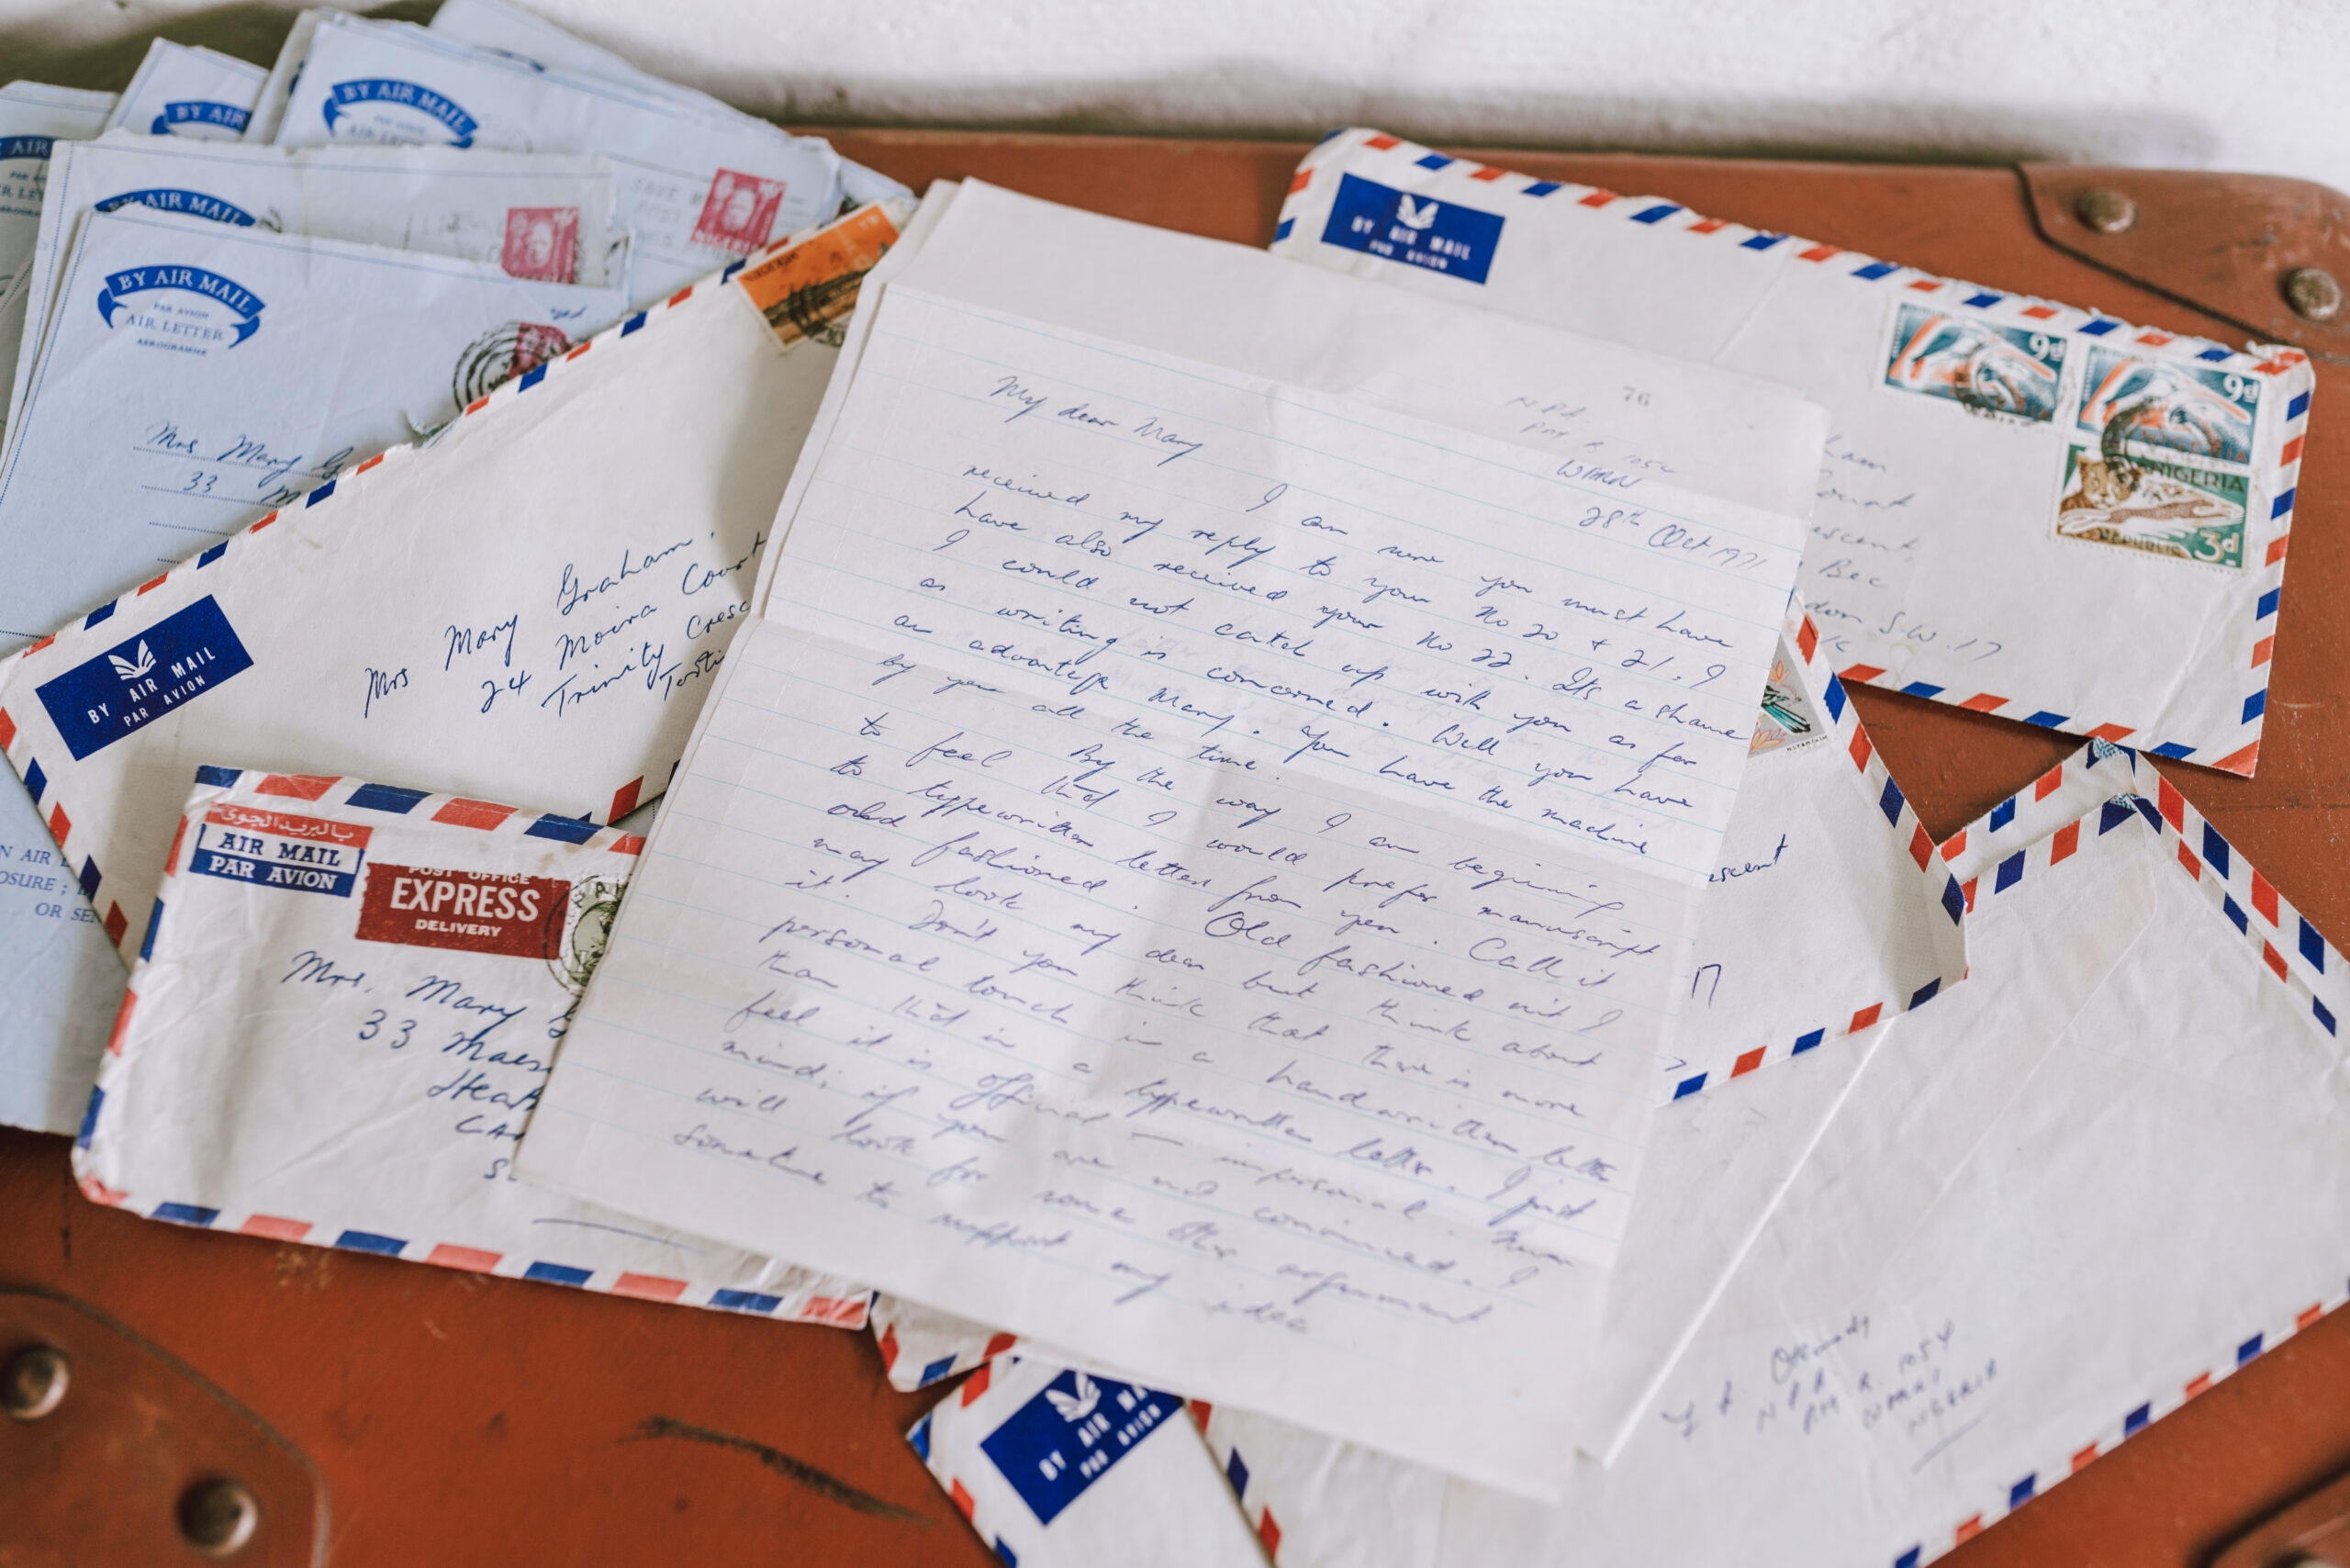 BY AIR MAIL
PAR AVION
AIR LETTER
AEROGRAMME
Mrs Mary G
33 M
BY AIR MAIL
AIR LETTER
BY AIR
BY AIR MAIL
NIGERIA
BY AIR MAIL
PAR AVION
Mrs Mary Graham,
24 Moira Court
Trinity Cresc
بالبريد الجوى
AIR MAIL
PAR AVION
POST OFFICE
EXPRESS
DELIVERY
Mrs. Mary G
33
Heat
BY AIR MAIL
PAR AVION
9d
9d
NIGERIA
REPUBLIC 3d
ham
Court
escent,
Bec
don S.W.17
76
WARRI
28th Oct 1971
My dear Mary
I am sure you must have
received my reply to your No 20 & 21. I
have also received your No 22. Its a shame
I could not catch up with you as far
as writing is concerned. Well you have
an advantage Mary. You have the machine
by you all the time.
By the way I am beginning
to feel that I would prefer manuscript
to typewritten letter from you. Call it
old fashioned. Old fashioned isn't I
may look my dear but think about
it. Don't you think that there is more
personal touch in a handwritten letter
than that in a typewritten letter. I just
feel it is official — impersonal.
mind; if you are not convinced. I
will look for some other argument
sometime to support my idea
escent
17
N P A
P.M.B. 1054
WARRI
NIGERIA
BY AIR MA
PAR AVION